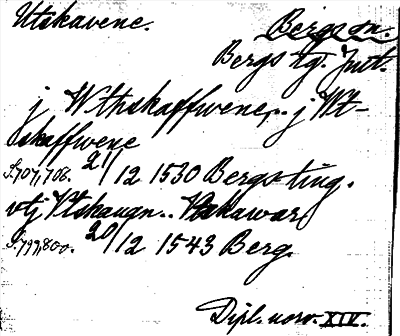 Utskavene. Bergs sn.
Bergs tg. Just.
j Wthskaffwene,.. j Wt-
skaffwene
S. 707, 708. 21/12 1530 Bergs ting.
vtj Vtskaugn.. Vtskawar
S. 799, 800. 20/12 1543 Berg.
Dipl. norv. XIV.